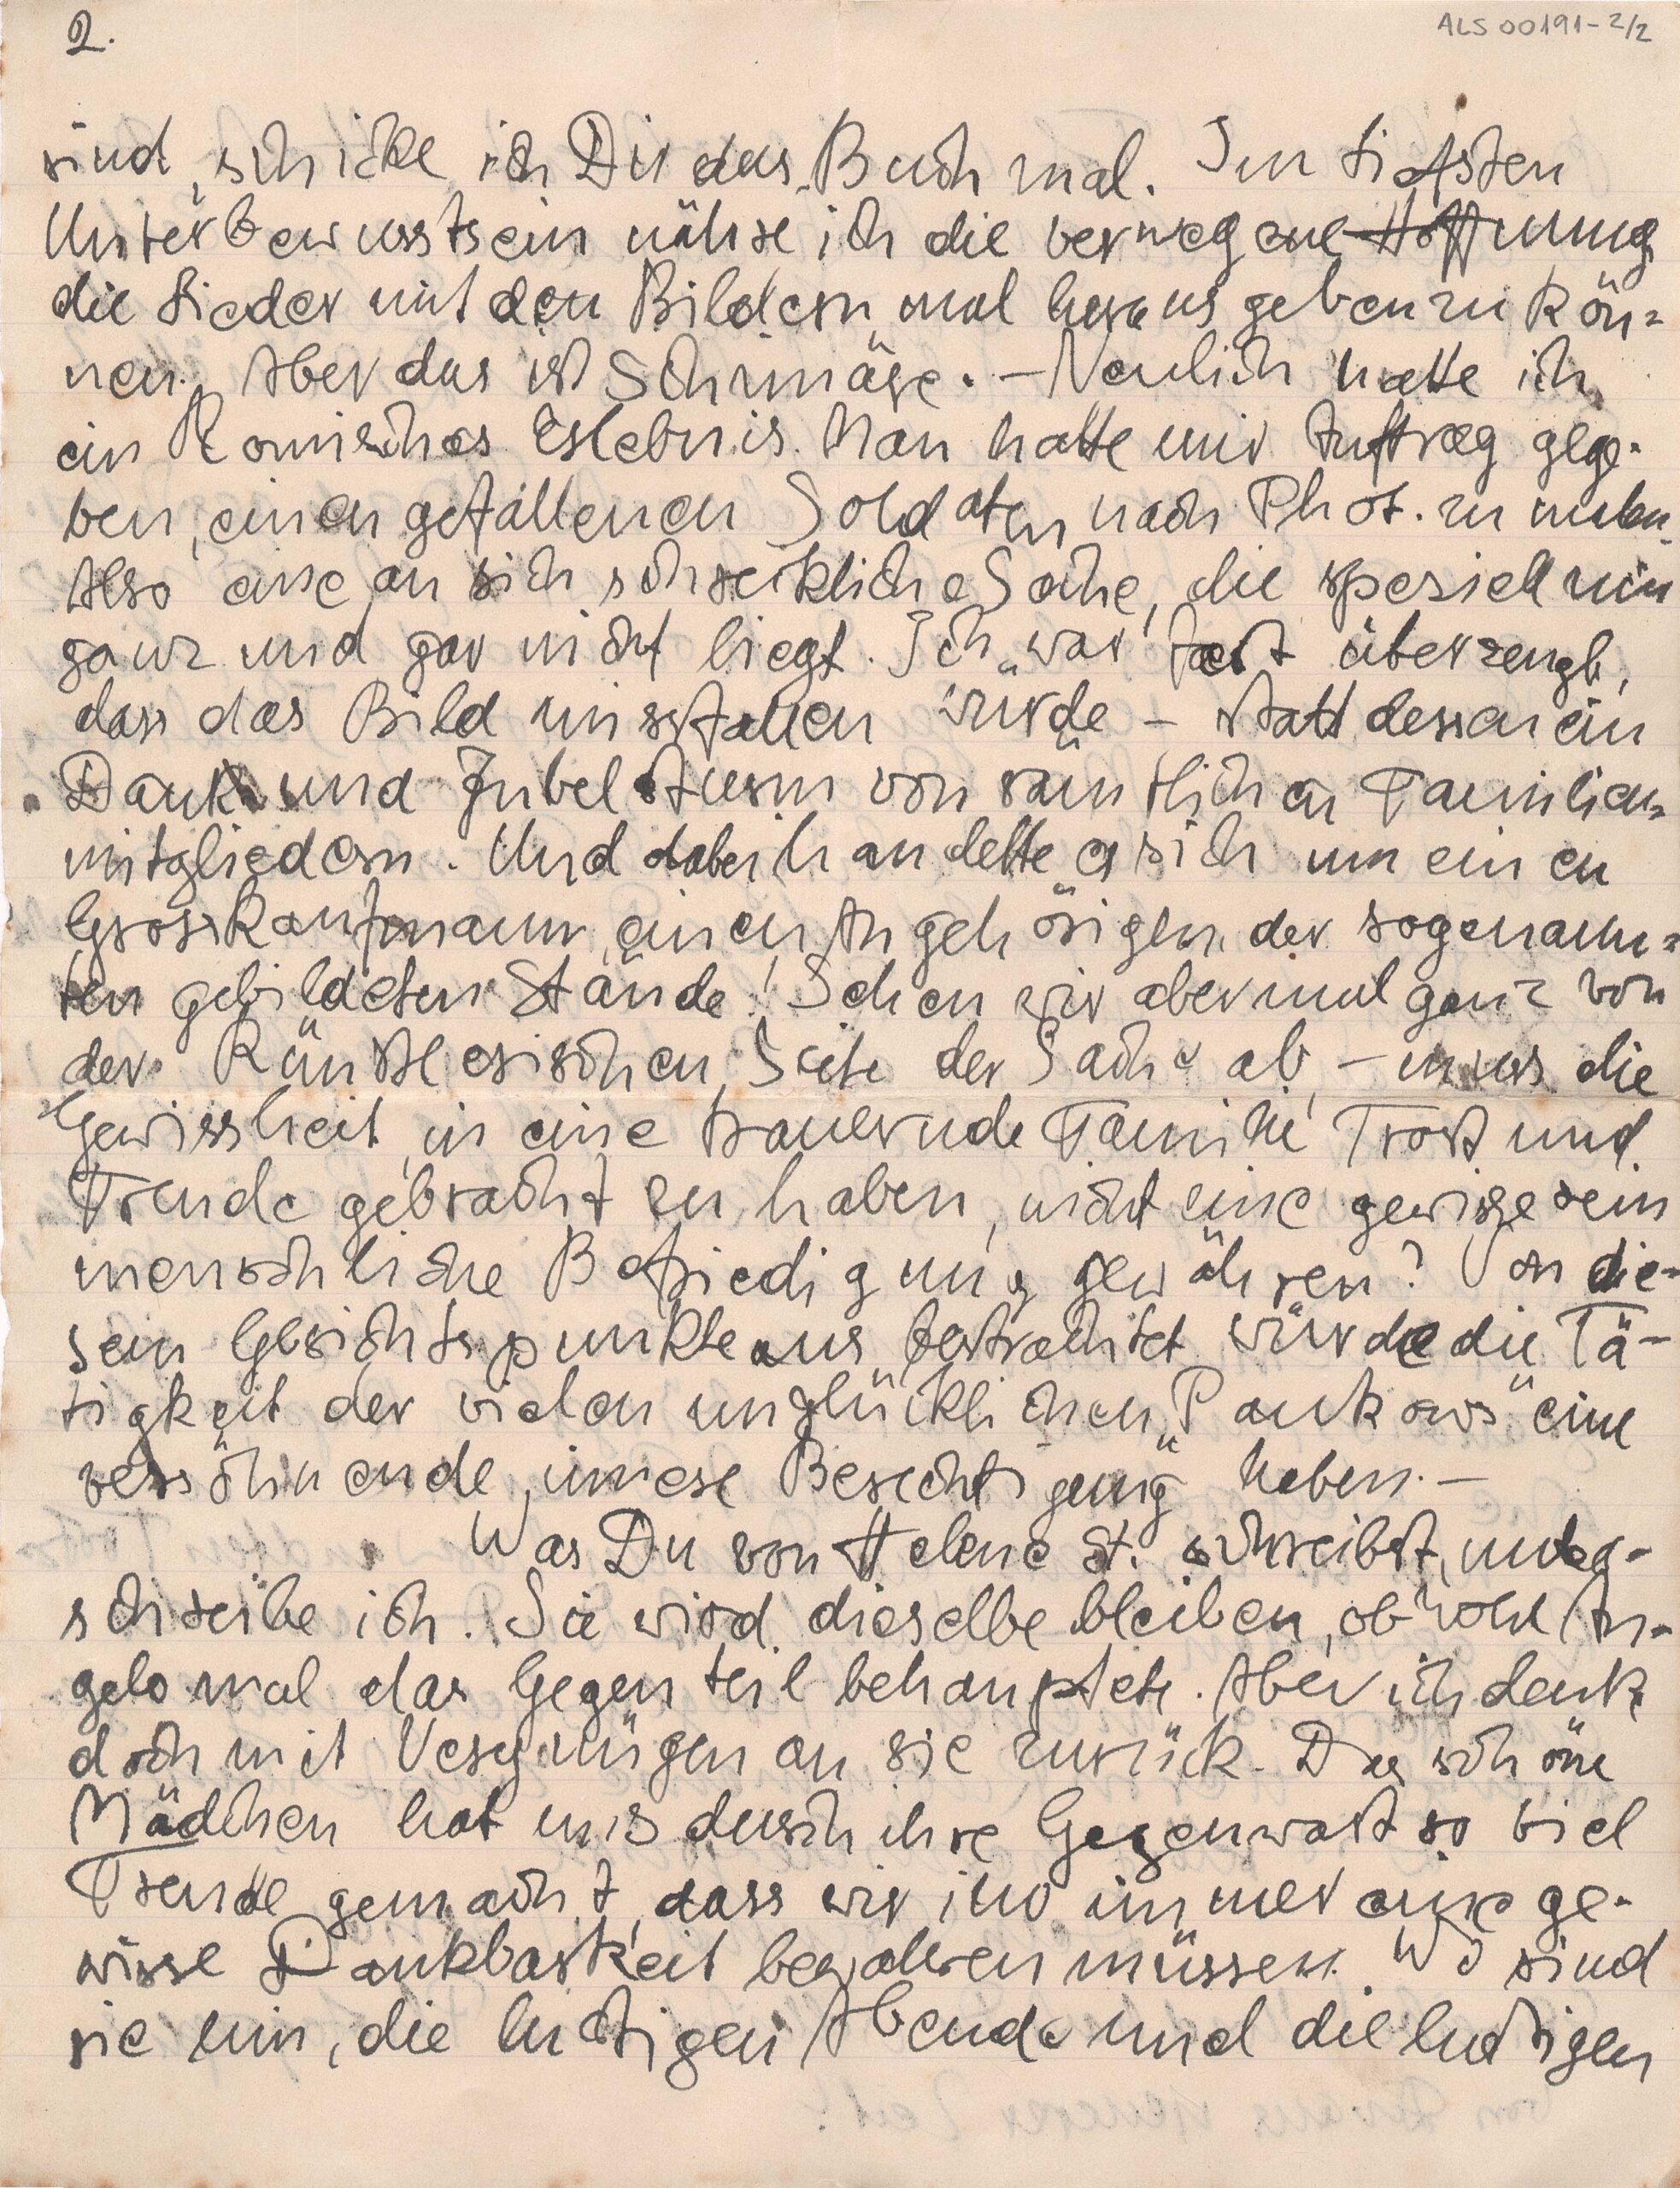 2.
ALS 00191-2/2
sind, schicke ich Dir das Buch mal. Im tiefsten
Unterbewusstsein nähre ich die verwegene Hoffnung
die Lieder mit den Bildern mal herausgeben zu kön=
nen. Aber das ist Schimäre. – Neulich hatte ich
ein komisches Erlebnis. Man hatte mir Auftrag gege-
ben, einen gefallenen Soldaten nach Phot. zu malen.
Also eine an sich schreckliche Sache, die speziell mir
ganz und gar nicht liegt. Ich war fest überzeugt,
dass das Bild missfallen würde – statt dessen ein
Dank und Jubelsturm von sämtlichen Familien=
mitgliedern. Und dabei handelte es sich um einen
Grosskaufmann, einen Angehörigen der sogenann=
ten gebildeten Stände! Sehen wir aber mal ganz von
der künstlerischen Seite der Sache ab, – muss die
Gewissheit, in eine trauernde Familie Trost und
Freude gebracht zu haben, nicht eine gewisse rein
menschliche Befriedigung gewähren? Von die-
sem Gesichtspunkte aus betrachtet würde die Tä-
tigkeit der vielen unglücklichen „Pankows“ eine
versöhnende, innere Berechtigung haben. –
Was Du von Helene St. schreibst, unter-
schreibe ich. Sie wird dieselbe bleiben, obwohl An-
gelo mal das Gegenteil behauptete. Aber ich denke
doch mit Vergnügen an sie zurück. Das schöne
Mädchen hat uns durch ihre Gegenwart so viel
Freude gemacht, dass wir ihr immer eine ge-
wisse Dankbarkeit bewahren müssen. Wo sind
sie hin, die lustigen Abende und die lustigen